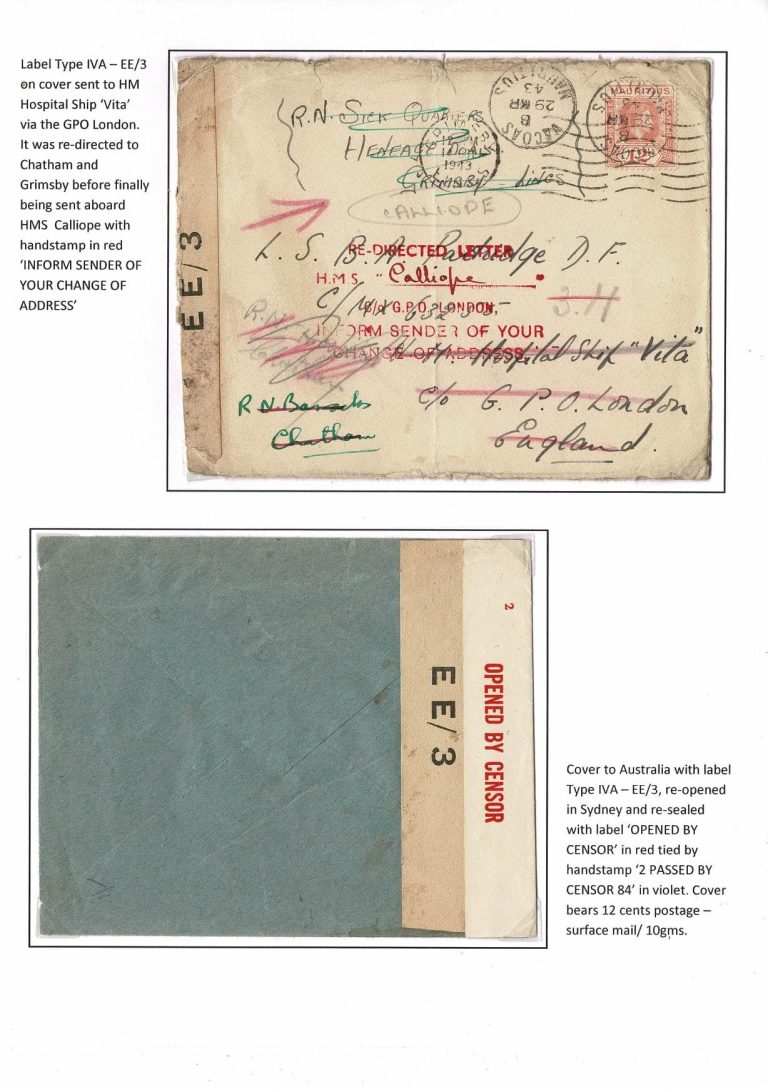 Label Type IVA – EE/3
on cover sent to HM
Hospital Ship ‘Vita’
via the GPO London.
It was re-directed to
Chatham and
Grimsby before finally
being sent aboard
HMS Calliope with
handstamp in red
‘INFORM SENDER OF
YOUR CHANGE OF
ADDRESS’
EE/3
R.N. SICK QUARTERS
HENEAGE ROAD
GRIMSBY LINCS
VACOAS
B
29 MR
43
MAURITIUS
VACOAS
B
29 MR
43
MAURITIUS
MAURITIUS
1943
CALLIOPE
RE-DIRECTED LETTER
H.M.S. "Calliope
C/o G.P.O. LONDON,
INFORM SENDER OF YOUR
CHANGE OF ADDRESS.
L. S. B. A. Partridge D. F.
C/MX 63255
3.H
H. M. Hospital Ship "Vita"
c/o G. P. O. London
England.
R.N.
R N Barracks
Chatham
EE/3
2
OPENED BY CENSOR
Cover to Australia with label
Type IVA – EE/3, re-opened
in Sydney and re-sealed
with label ‘OPENED BY
CENSOR’ in red tied by
handstamp ‘2 PASSED BY
CENSOR 84’ in violet. Cover
bears 12 cents postage –
surface mail/ 10gms.